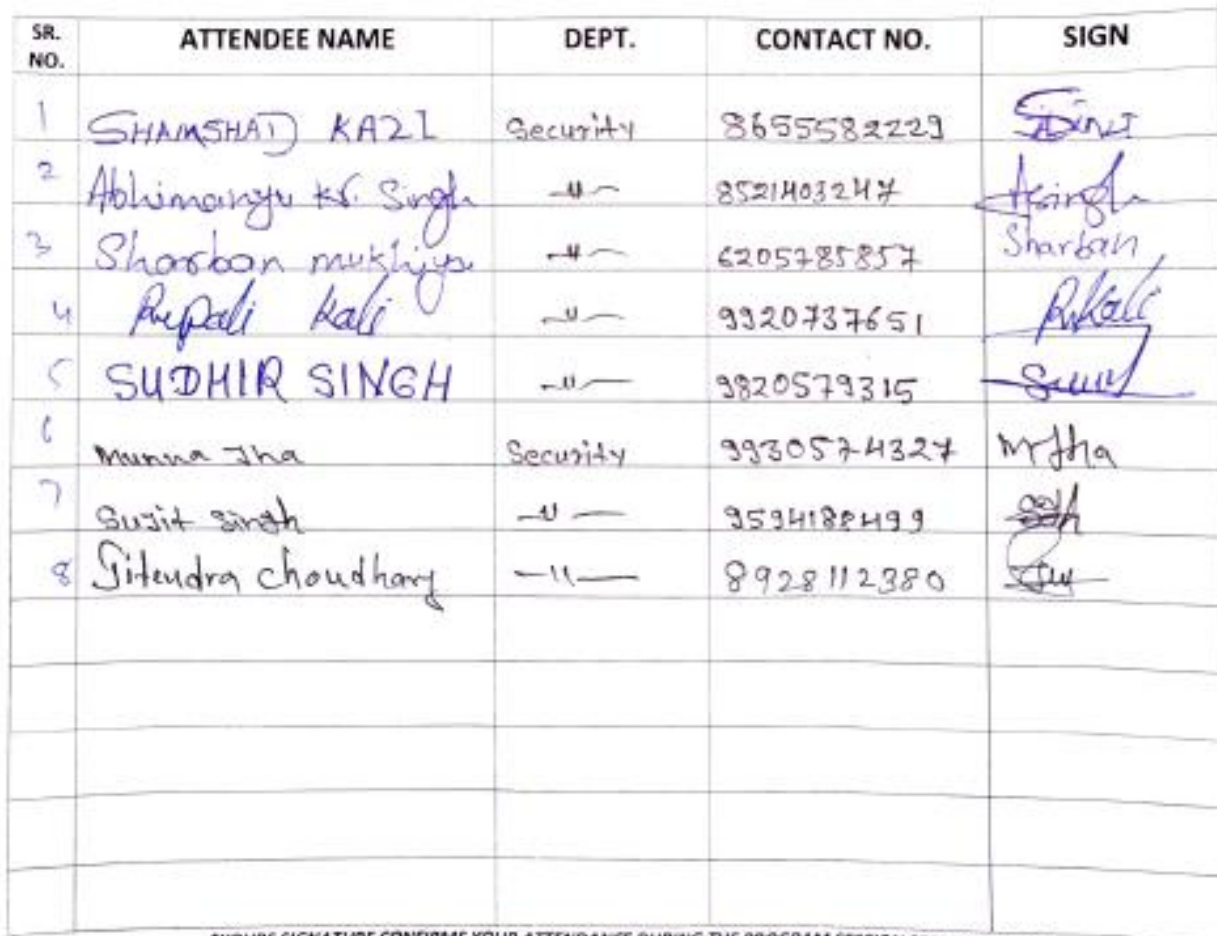 SR. NO. ATTENDEE NAME DEPT. CONTACT NO. SIGN
1 SHAMSHAD KAZI Security 8655582229
2 Abhimanyu Kr. Singh —〃— 8521403247 Asingh
3 Sharban mukhiya —〃— 6205785857 Sharban
4 Rupali Kali —〃— 9920737651 R.Kali
5 SUDHIR SINGH —〃— 9820579315
6 Munna Jha Security 9930574327 MJha
7 Sujit Singh —〃— 9594188499
8 Jitendra Choudhary —〃— 8928112380
SIGNATURE CONFIRMS YOUR ATTENDANCE DURING THE PROGRAM SESSION